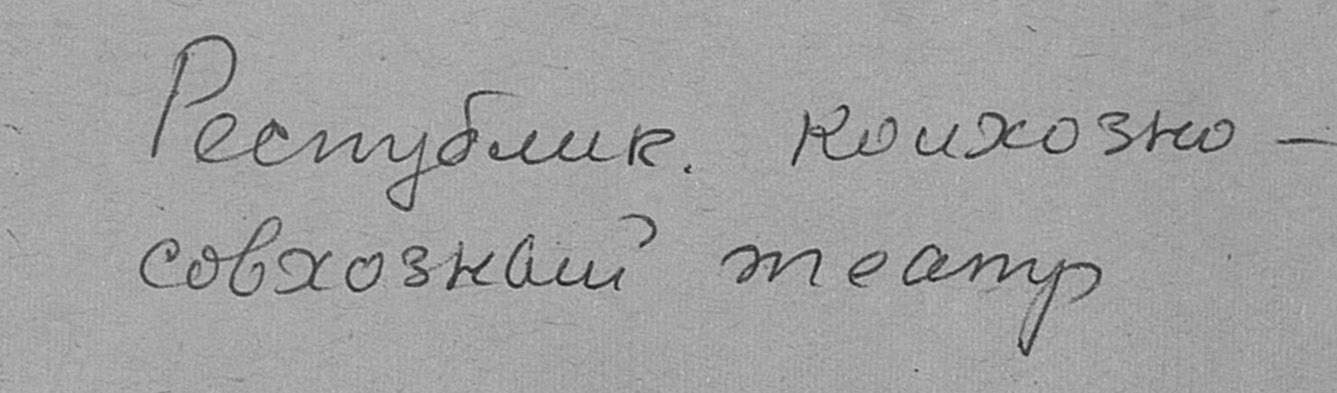 Республик. колхозно –
совхозный театр